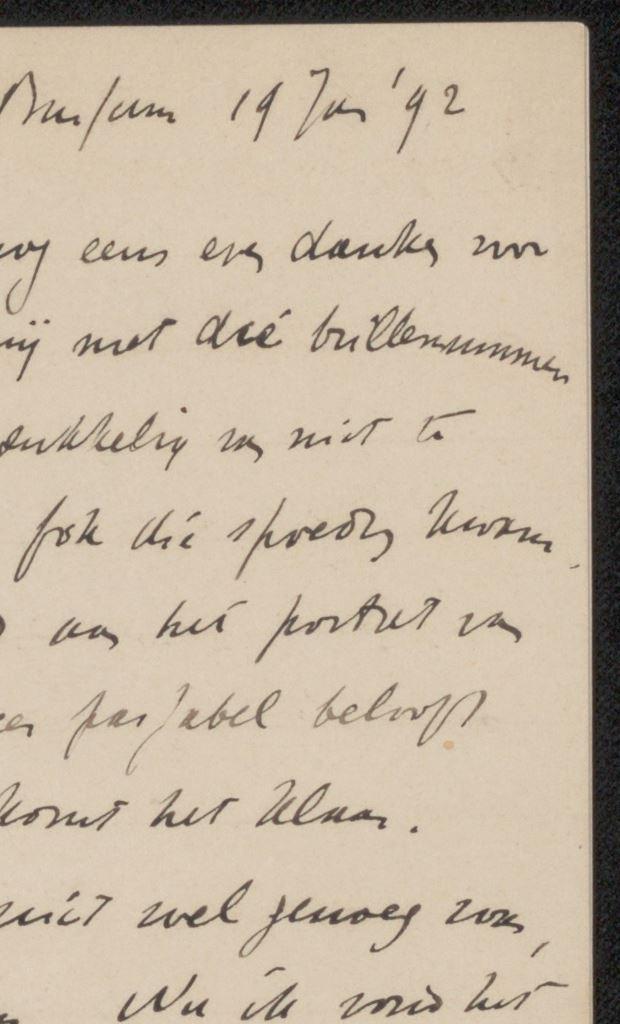 Bussum 19 Jan '92
nog eens even danken voor
mij met die brillennummer
sukkelig en niet te
fok die spoedig kwam.
aan het portret van
passabel belooft
komt het klaar.
niet wel genoeg voor,
Nu ik vond het